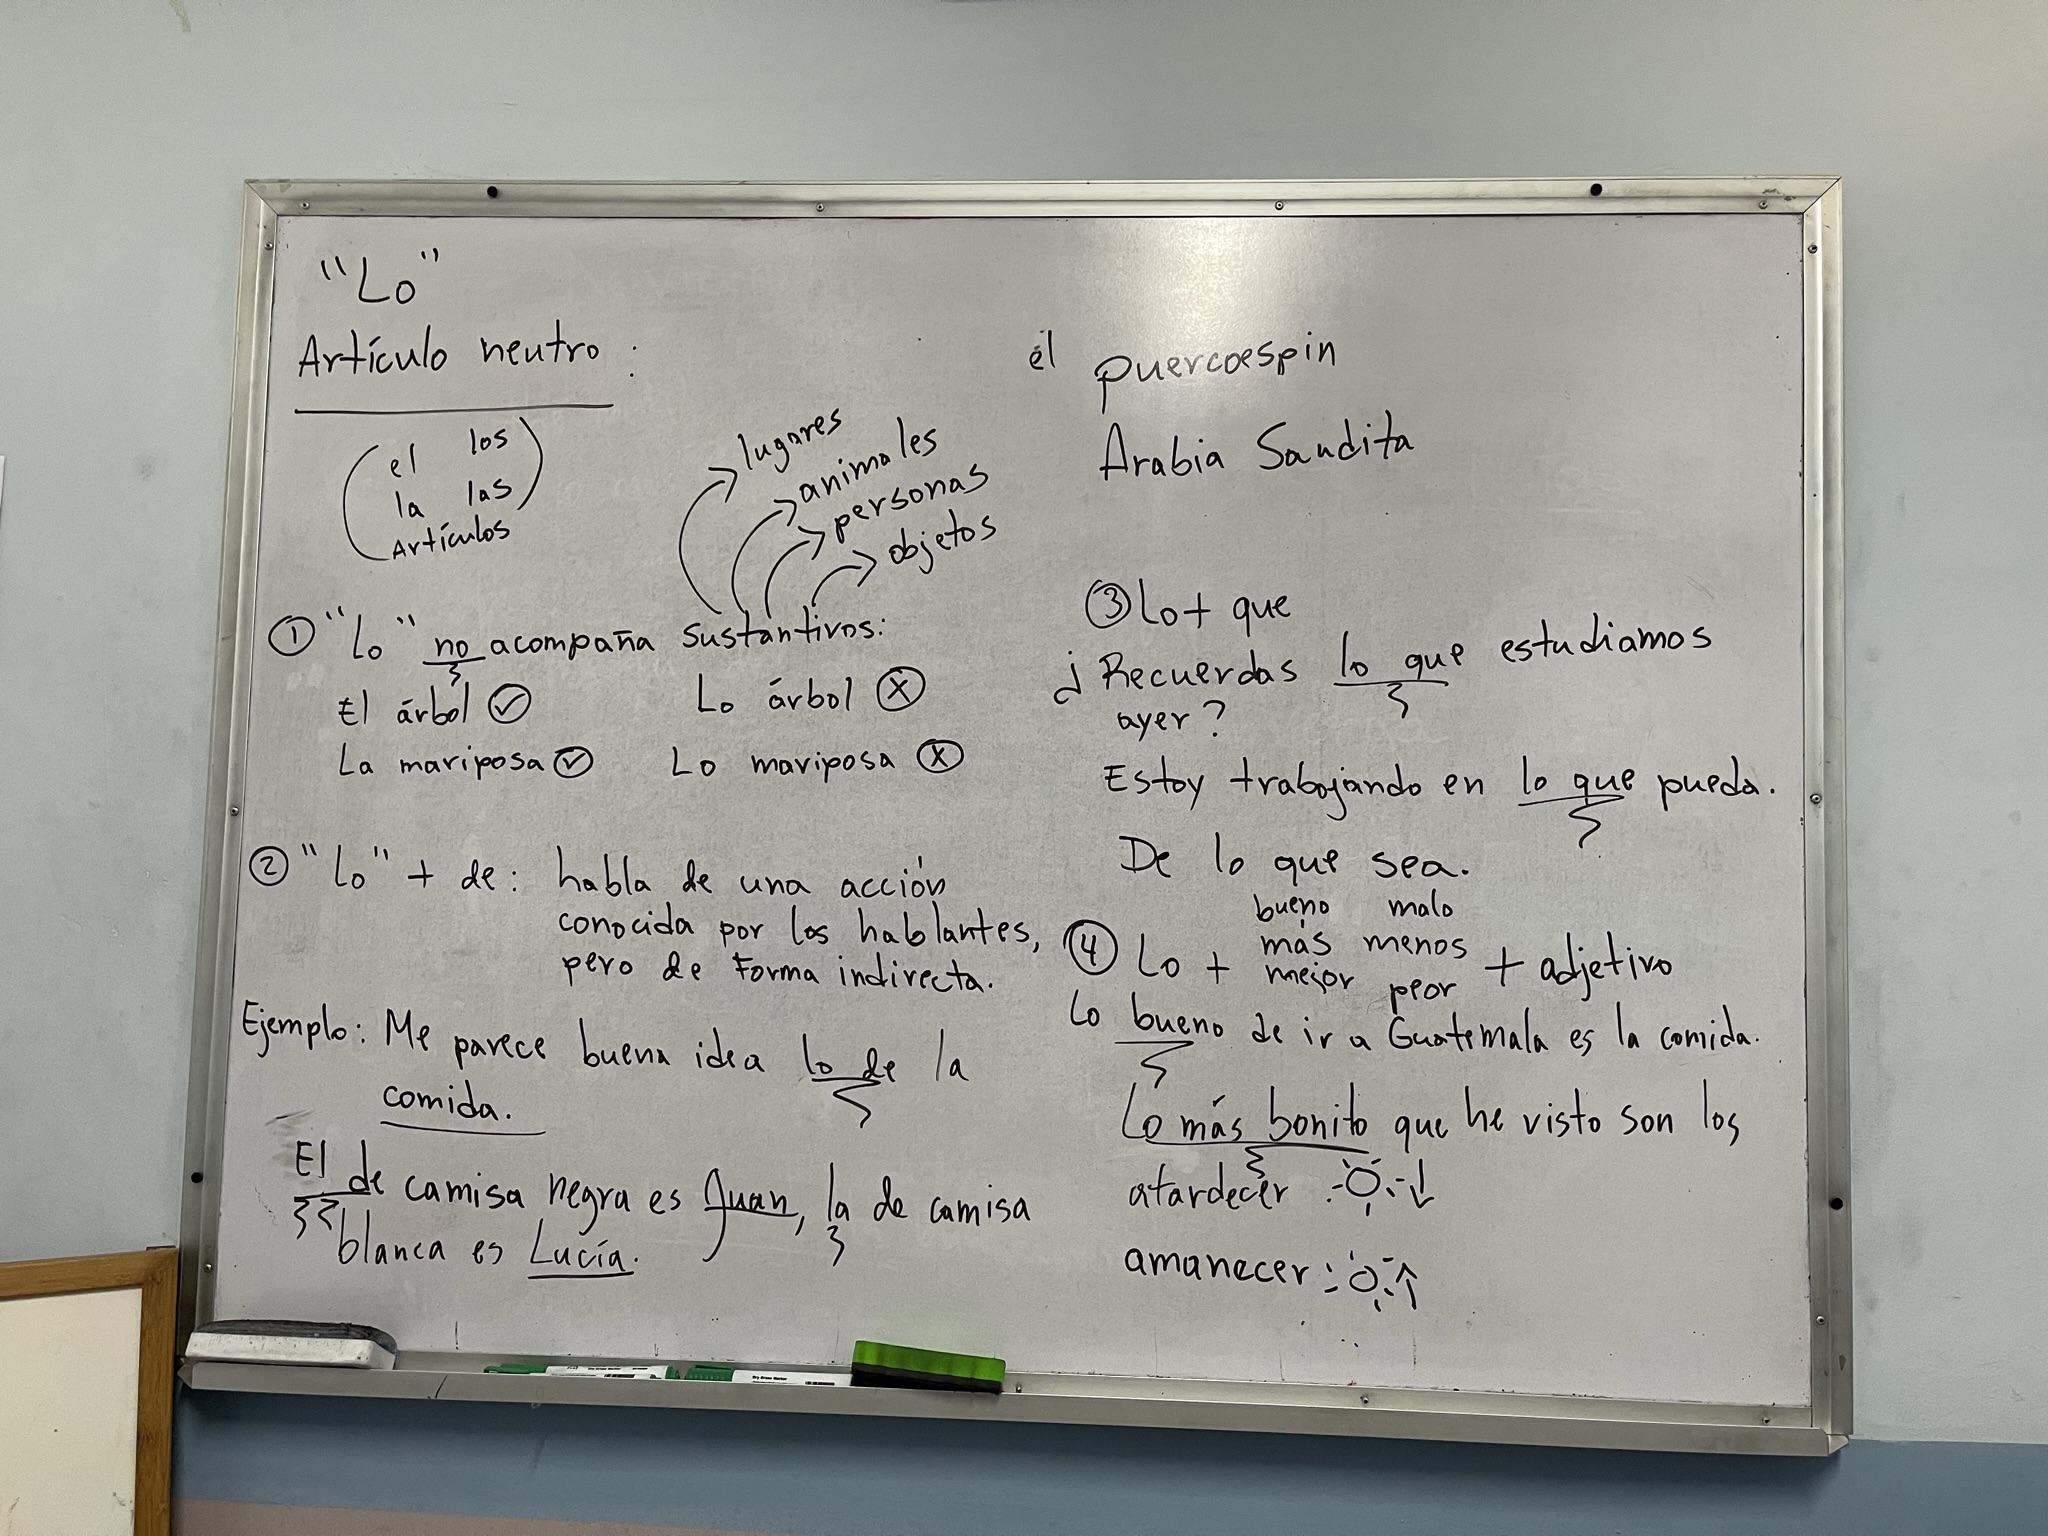 "Lo"
Artículo neutro:
(el los)
la las
Artículos
lugares
animales
personas
objetos
① "Lo" no acompaña sustantivos:
El árbol ✓ Lo árbol X
La mariposa ✓ Lo mariposa X
② "Lo" + de: habla de una acción
conocida por los hablantes,
pero de forma indirecta.
Ejemplo: Me parece buena idea lo de la
comida.
El de camisa negra es Juan, la de camisa
blanca es Lucía.
él puercoespin
Arabia Saudita
③ Lo + que
¿Recuerdas lo que estudiamos
ayer?
Estoy trabajando en lo que pueda.
De lo que sea.
bueno malo
④ Lo + más menos + adjetivo
mejor peor
Lo bueno de ir a Guatemala es la comida.
Lo más bonito que he visto son los
atardecer
amanecer:
Dry Erase Marker